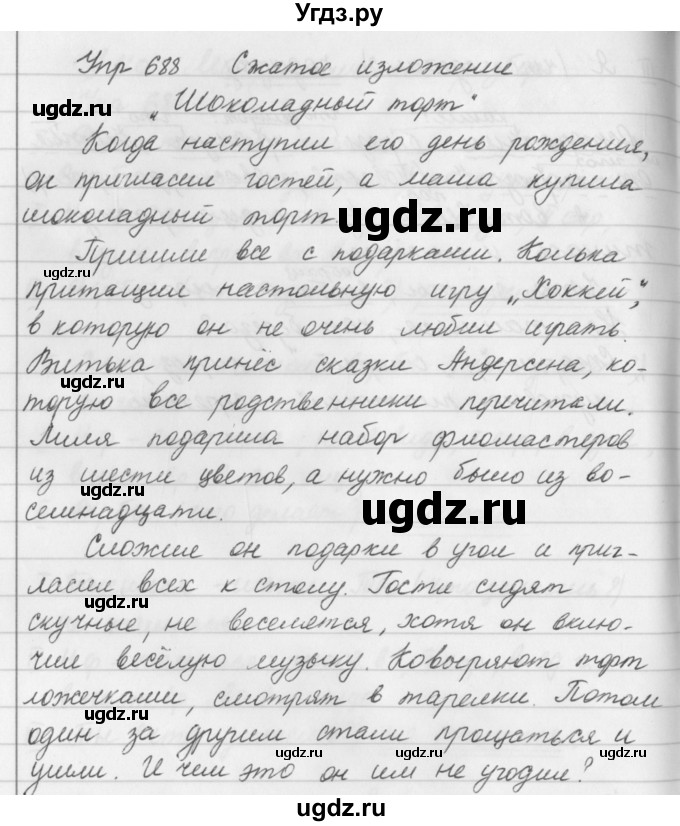 Угдз.ру
Упр 688 Сжатое изложение
"Шоколадный торт"
Когда наступил его день рождения,
он пригласил гостей, а мама купила
шоколадный торт
ugdz.ru
Пришли все с подарками. Колька
ugdz.ru
притащил настольную игру „Хоккей",
в которую он не очень любил играть.
Витька принёс сказки Андерсена, ко-
ugdz.ru
торую все родственники перечитали.
Лиля подарила набор фломастеров
из шести цветов, а нужно было из во-
семнадцати.
ugdz.ru
Сложил он подарки в угол и приг-
ugdz.ru
ласил всех к столу. Гости сидят
скучные, не веселятся, хотя он вклю-
чил весёлую музыку. Ковыряют торт
ложечками, смотрят в тарелки. Потом
ugdz.ru
один за другим стали прощаться и
ушли. И чем это он им не угодил?
ugdz.ru ugdz.ru ugdz.ru
ugdz.ru